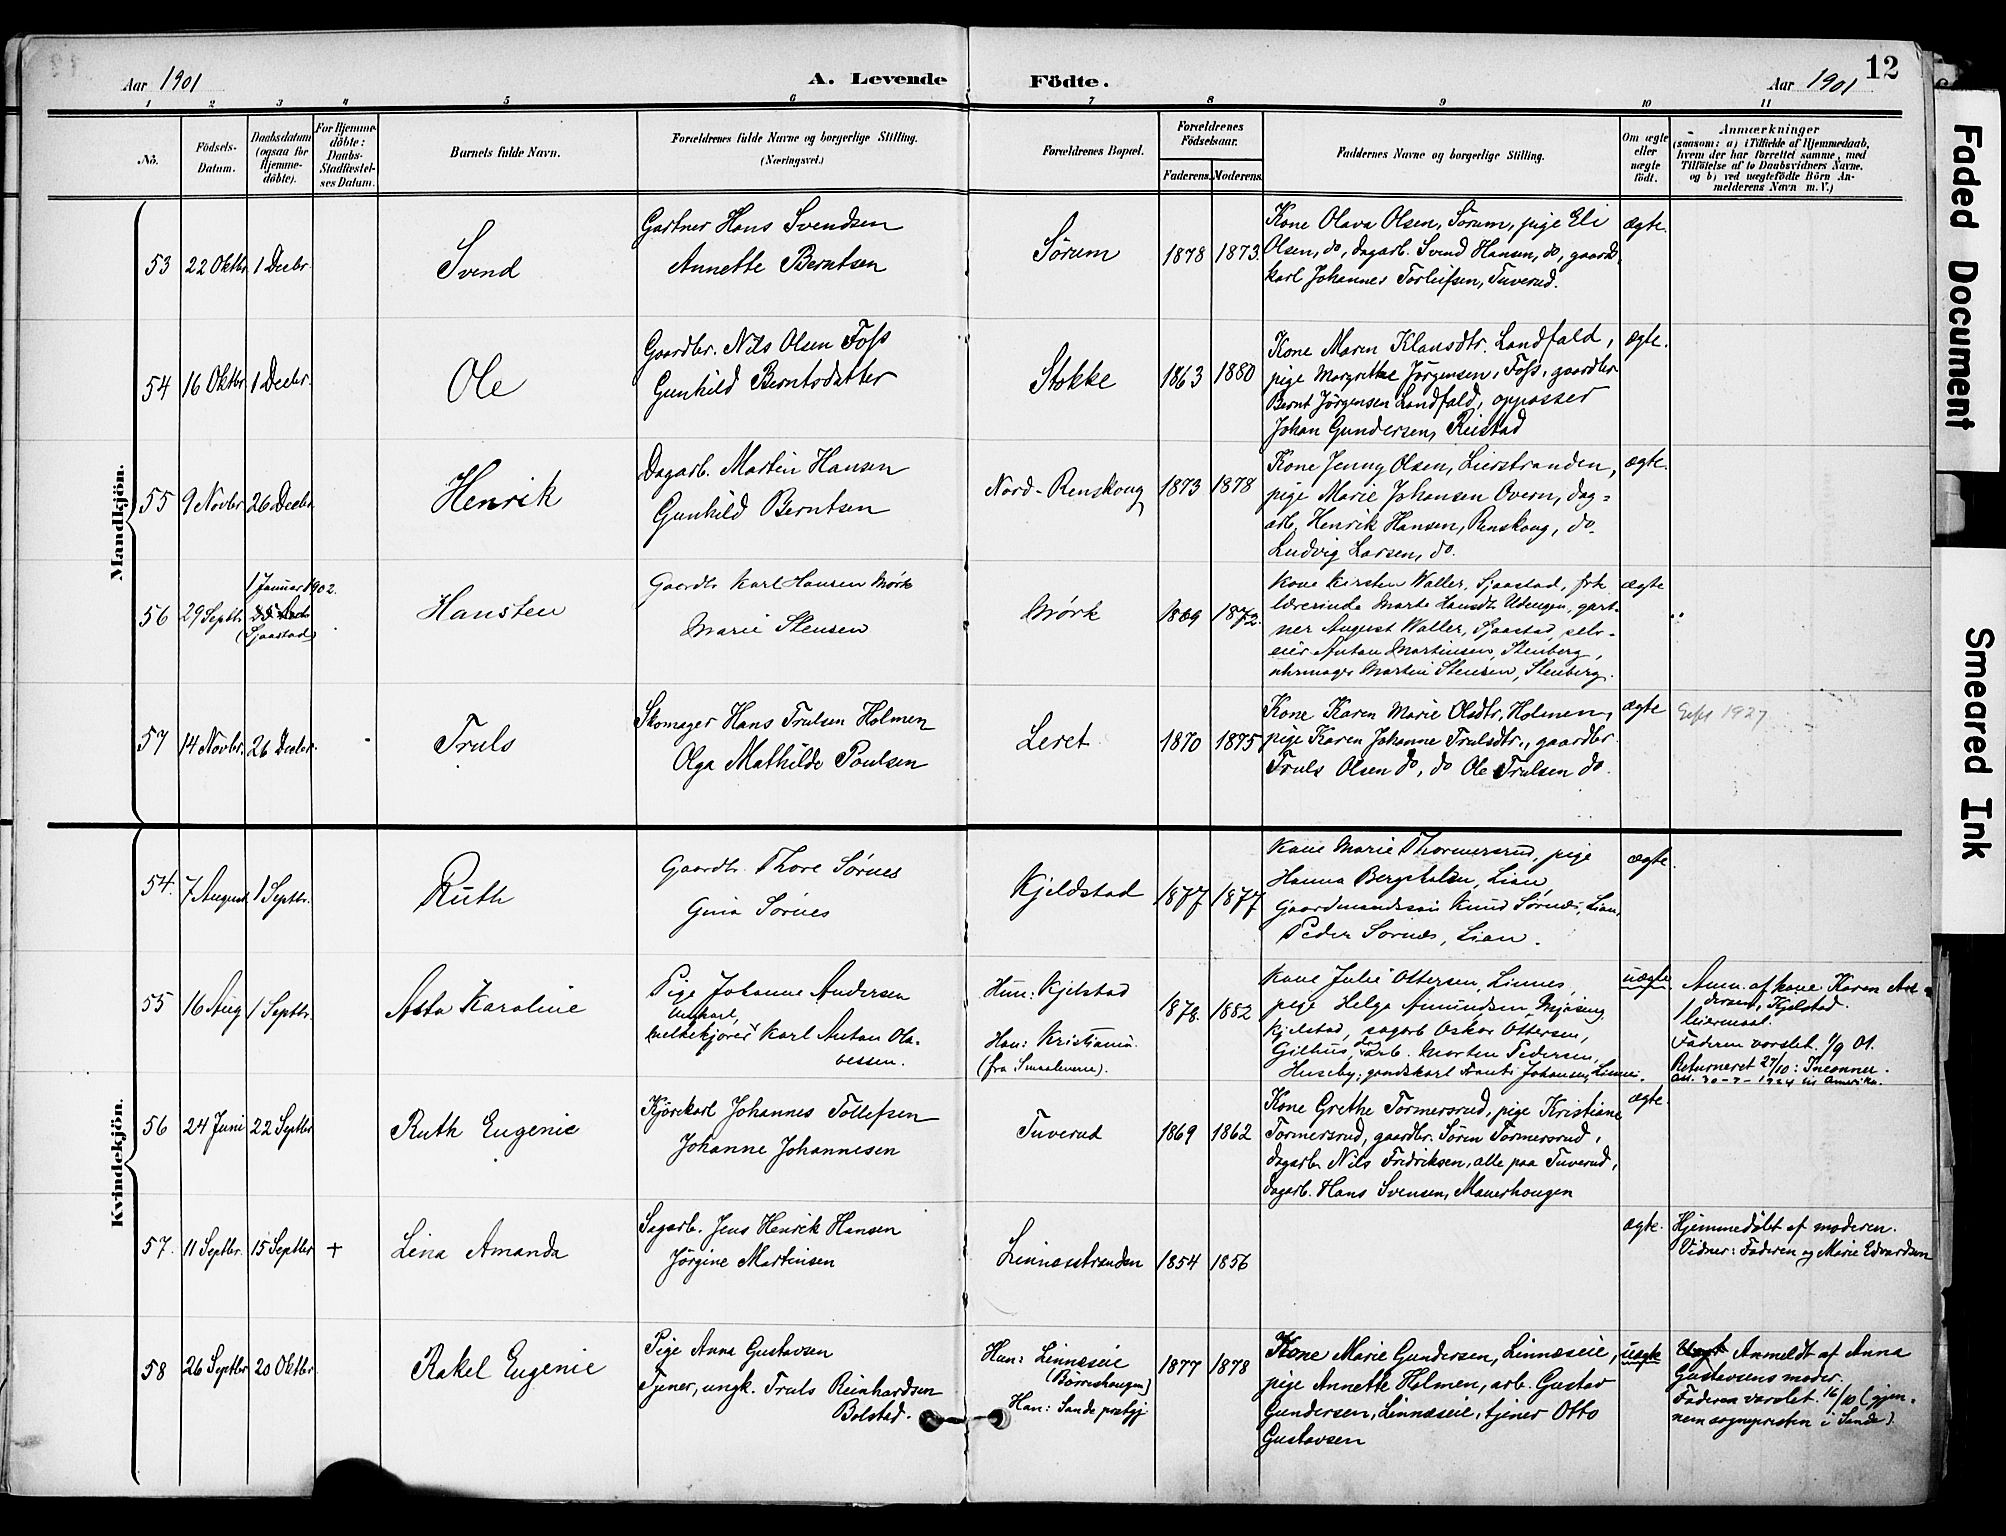 Aar 1901
A. Levende Födte.
Aar 1901
12
1 2 3 4 5 6 7 8 9 10 11
No.
Födsels-Datum.
Daabsdatum (ogsaa for Hjemme-döbte).
For Hjemme-döbte: Daabs-Stadfæstel-ses Datum.
Barnets fulde Navn.
Forældrenes fulde Navne og borgerlige Stilling. (Næringsvei.)
Forældrenes Bopæl.
Forældrenes Födselsaar.
Faderens. Moderens.
Faddernes Navne og borgerlige Stilling.
Om ægte eller uægte födt.
Anmærkninger
(saasom: a) i Tilfælde af Hjemmedaab,
hvem der har forrettet samme, med
Tilföielse af to Daabsvidners Navne,
og b) ved uægtefödte Börn An-
melderens Navn m. V.)
Mandkjön.
53 22 Oktbr. 1 Decbr. Svend
Gartner Hans Svendsen
Annette Berntsen
Sörum 1878 1873.
Kone Olava Olsen, Sörum, pige Eli
Olsen, do, dagarb. Svend Hansen, do, gaards-
karl Johannes Torleifsen, Tuverud.
ægte.
54 16 Oktbr. 1 Decbr. Ole
Gaardbr. Nils Olsen Foss
Gunhild Berntsdatter
Stokke 1863 1880
Kone Maren Klausdtr. Landfald,
pige Margrethe Jörgensen, Foss, gaardbr.
Bernt Jörgensen Landfald, oppasser
Johan Gundersen, Rustad
ægte.
55 9 Novbr. 26 Decbr. Henrik
Dagarb. Martin Hansen
Gunhild Berntsen
Nord-Renskoug 1873 1878
Kone Jenny Olsen, Lierstranden,
pige Marie Johansen Overn, dag-
arb. Henrik Hansen, Renskoug, do
Ludvig Larsen, do.
ægte.
56 29 Septbr. 1 Januar 1902.
(Sjaastad)
Hansten
Gaardbr. Karl Hansen Mörk
Marie Stensen
Mörk 1869 1872.
Kone Kirsten Waller, Sjaastad, frk.
lærerinde Marte Hansdtr. Udengen, gart-
ner August Waller, Sjaastad, selv-
eier Anton Martinsen, Stenberg,
uhrmager Martin Stensen, Stenberg.
ægte
57 14 Novbr. 26 Decbr. Truls
Skomager Hans Trulsen Holmen
Olga Mathilde Poulsen
Leret 1870 1875
Kone Karen Marie Olsdtr, Holmen,
pige Karen Johanne Trulsdtr., gaardbr.
Truls Olsen do, do Ole Trulsen do.
ægte
1927
Kvindekjön.
54. 7 August 1 Septbr. Ruth
Gaardbr. Thore Sörnes
Gina Sörnes
Kjeldstad 1877 1877
Kone Marie Thormersrud, pige
Hanna Bergitalsen, Lian,
Gaardmandssön Knud Sörnes, Lian,
Peder Sörnes, Lian.
ægte.
55 16 Aug 1 Septbr. Asta Karoline
Pige Johanne Andersen
Ungkarl,
melkekjörer Karl Anton Ola-
vessen.
Hun: Kjelstad
Han: Kristiania
(fra Smaalenene).
1878. 1882
Kone Julie Ottersen, Linnes,
pige Helga Amundsen,
Kjelstad, sagarb Oskar Ottersen,
Gilhus, dagarb. Morten Pedersen,
Huseby, gaardskarl Johansen, Linnes.
uægte
Anm. af kone Karen An-
dersen, Kjelstad.
1 leiermaal.
Faderen varslet. 1/9 01.
Returneret 27/10:
56 24 Juni 22 Septbr Ruth Eugenie
Kjörekarl Johannes Tollefsen
Johanne Johannesen
Tuverud 1869 1862
Kone Grethe Tormersrud, pige Kristiane
Tormersrud, gaardbr. Sören Tormersrud,
dagarb. Nils Fridriksen, alle paa Tuverud,
dagarb. Hans Svensen, Mauerhougen
ægte.
57. 11 Septbr. 15 Septbr + Lina Amanda
Sagarb. Jens Henrik Hansen
Jörgine Martinsen
Linnesstranden 1854 1856
ægte.
Hjemmedöbt af moderen.
Vidner: Faderen og Marie Edvardsen
58 26 Septbr 20 Oktbr Rakel Eugenie
Pige Anna Gustavsen
Tjener, ungk. Truls Reinhardsen
Bolstad.
Hun: Linneseie
(Börreshaugen)
Han: Sande prstgj.
1877 1878
Kone Marie Gundersen, Linneseie,
pige Annette Holmen, arb. Gustav
Gundersen, Linneseie, tjener Otto
Gustavsen
uægte
Anmeldt af Anna
Gustavsens moder.
Faderen varslet. 16/10 (gjen-
nem sognepresten i Sande).
Faded Document
Smeared Ink